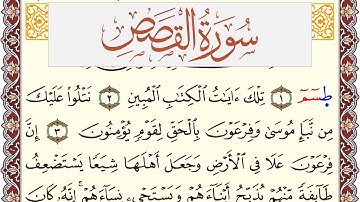 سُورَةُ القَصَصِ
طسٓمٓ ١ تِلْكَ ءَايَٰتُ ٱلْكِتَٰبِ ٱلْمُبِينِ ٢ نَتْلُوا۟ عَلَيْكَ
مِن نَّبَإِ مُوسَىٰ وَفِرْعَوْنَ بِٱلْحَقِّ لِقَوْمٍ يُؤْمِنُونَ ٣ إِنَّ
فِرْعَوْنَ عَلَا فِى ٱلْأَرْضِ وَجَعَلَ أَهْلَهَا شِيَعًا يَسْتَضْعِفُ
طَآئِفَةً مِّنْهُمْ يُذَبِّحُ أَبْنَآءَهُمْ وَيَسْتَحْىِۦ نِسَآءَهُمْ ۚ إِنَّهُۥ كَانَ